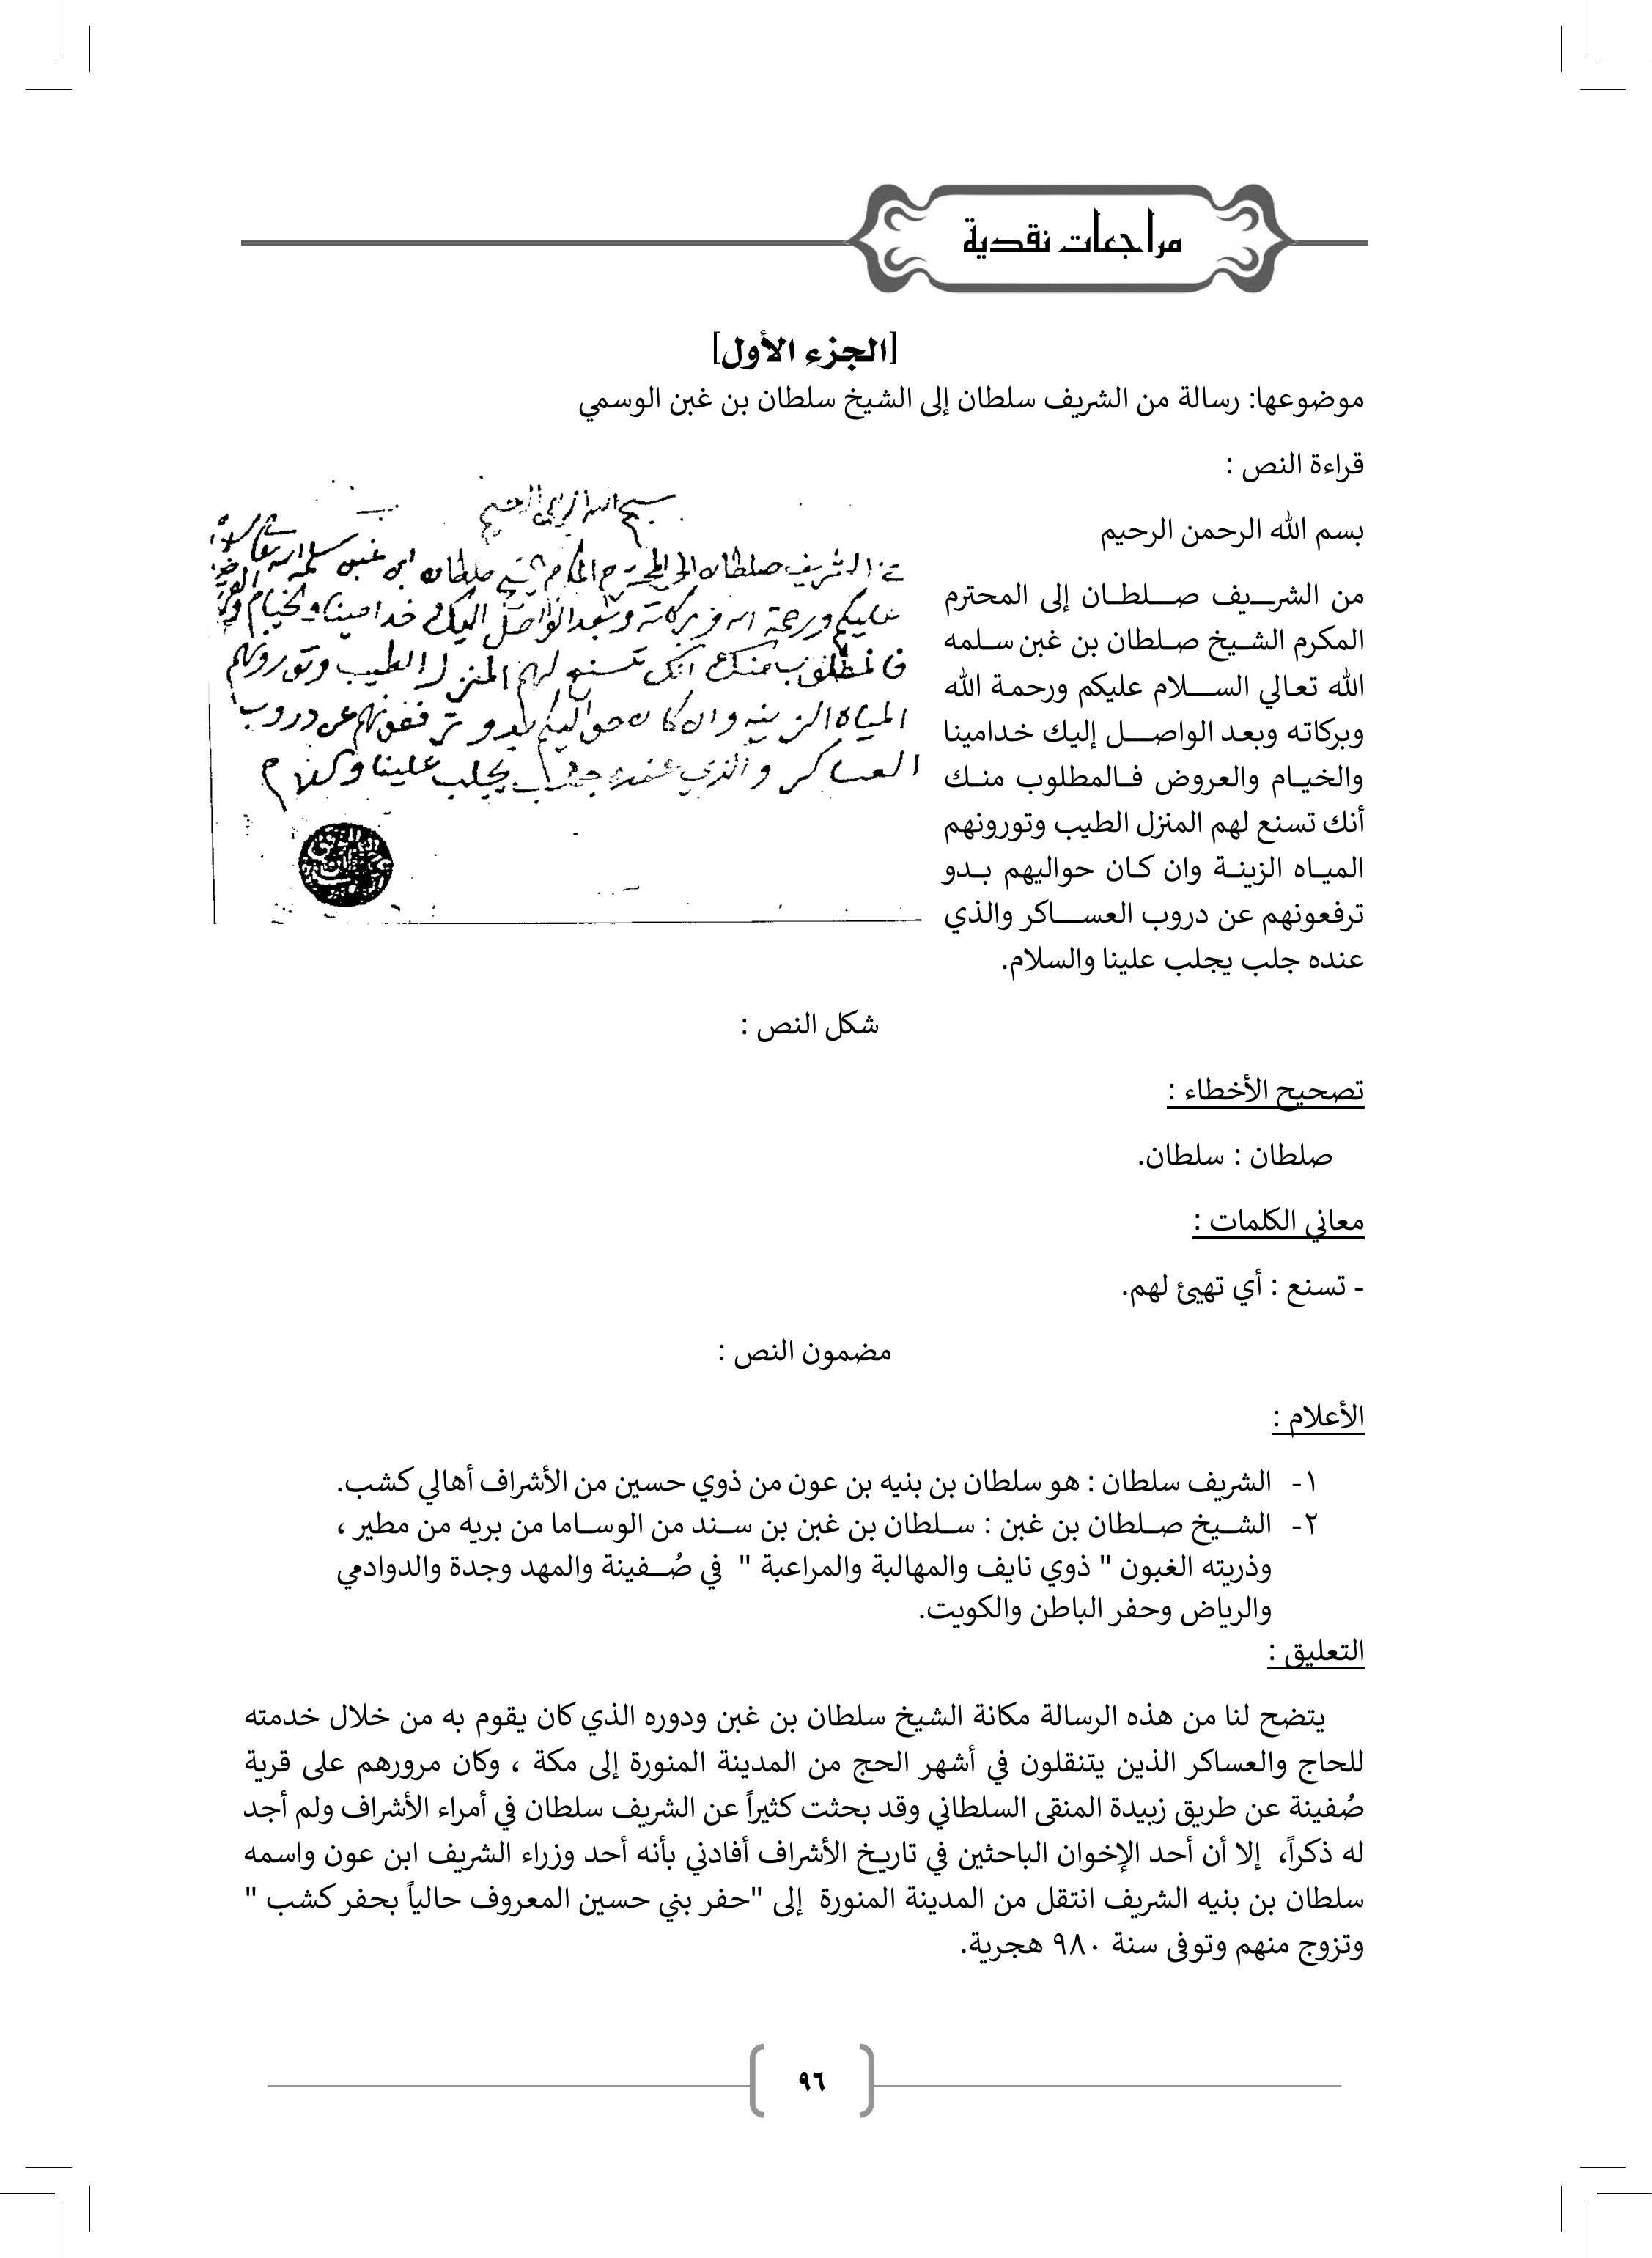 مراجعات نقدية
[الجزء الأول]
موضوعها: رسالة من الشريف سلطان إلى الشيخ سلطان بن غبن الوسمي
قراءة النص :
بسم الله الرحمن الرحيم
من الشريف صلطان إلى المحترم
المكرم الشيخ صلطان بن غبن سلمه
الله تعالي السلام عليكم ورحمة الله
وبركاته وبعد الواصل إليك خدامينا
والخيام والعروض فالمطلوب منك
أنك تسنع لهم المنزل الطيب وتورونهم
المياه الزينة وان كان حواليهم بدو
ترفعونهم عن دروب العساكر والذي
عنده جلب يجلب علينا والسلام.
بسم الله الرحمن الرحيم
من الشريف صلطان الى المحترم المكرم الشيخ صلطان ابن غبن سلمه الله تعالى السلام
عليكم ورحمة الله وبركاته وبعد الواصل اليك خدامينا والخيام
فالمطلوب منك انك تسنع لهم المنزل الطيب وتورونهم
المياه الزينه وان كان حواليهم بدو ترفعونهم عن دروب
العساكر والذي عنده جلب يجلب علينا والسلام
شكل النص :
تصحيح الأخطاء :
صلطان : سلطان.
معاني الكلمات :
- تسنع : أي تهيئ لهم.
مضمون النص :
الأعلام :
١- الشريف سلطان : هو سلطان بن بنيه بن عون من ذوي حسين من الأشراف أهالي كشب.
٢- الشيخ صلطان بن غبن : سلطان بن غبن بن سند من الوساما من بريه من مطير ،
وذريته الغبون " ذوي نايف والمهالبة والمراعبة " في صُفينة والمهد وجدة والدوادمي
والرياض وحفر الباطن والكويت.
التعليق :
يتضح لنا من هذه الرسالة مكانة الشيخ سلطان بن غبن ودوره الذي كان يقوم به من خلال خدمته
للحاج والعساكر الذين يتنقلون في أشهر الحج من المدينة المنورة إلى مكة ، وكان مرورهم على قرية
صُفينة عن طريق زبيدة المنقى السلطاني وقد بحثت كثيراً عن الشريف سلطان في أمراء الأشراف ولم أجد
له ذكراً، إلا أن أحد الإخوان الباحثين في تاريخ الأشراف أفادني بأنه أحد وزراء الشريف ابن عون واسمه
سلطان بن بنيه الشريف انتقل من المدينة المنورة إلى "حفر بني حسين المعروف حالياً بحفر كشب "
وتزوج منهم وتوفى سنة ٩٨٠ هجرية.
٩٦